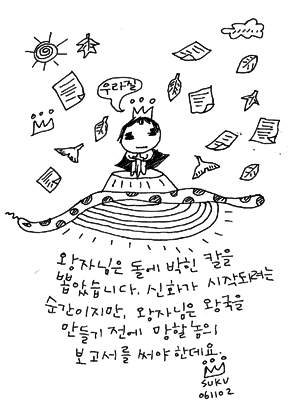 우라질
왕자님은 돌에 박힌 칼을
뽑았습니다. 신화가 시작되려는
순간이지만, 왕자님은 왕국을
만들기 전에 망할놈의
보고서를 써야 한데요.
SUKU
061102